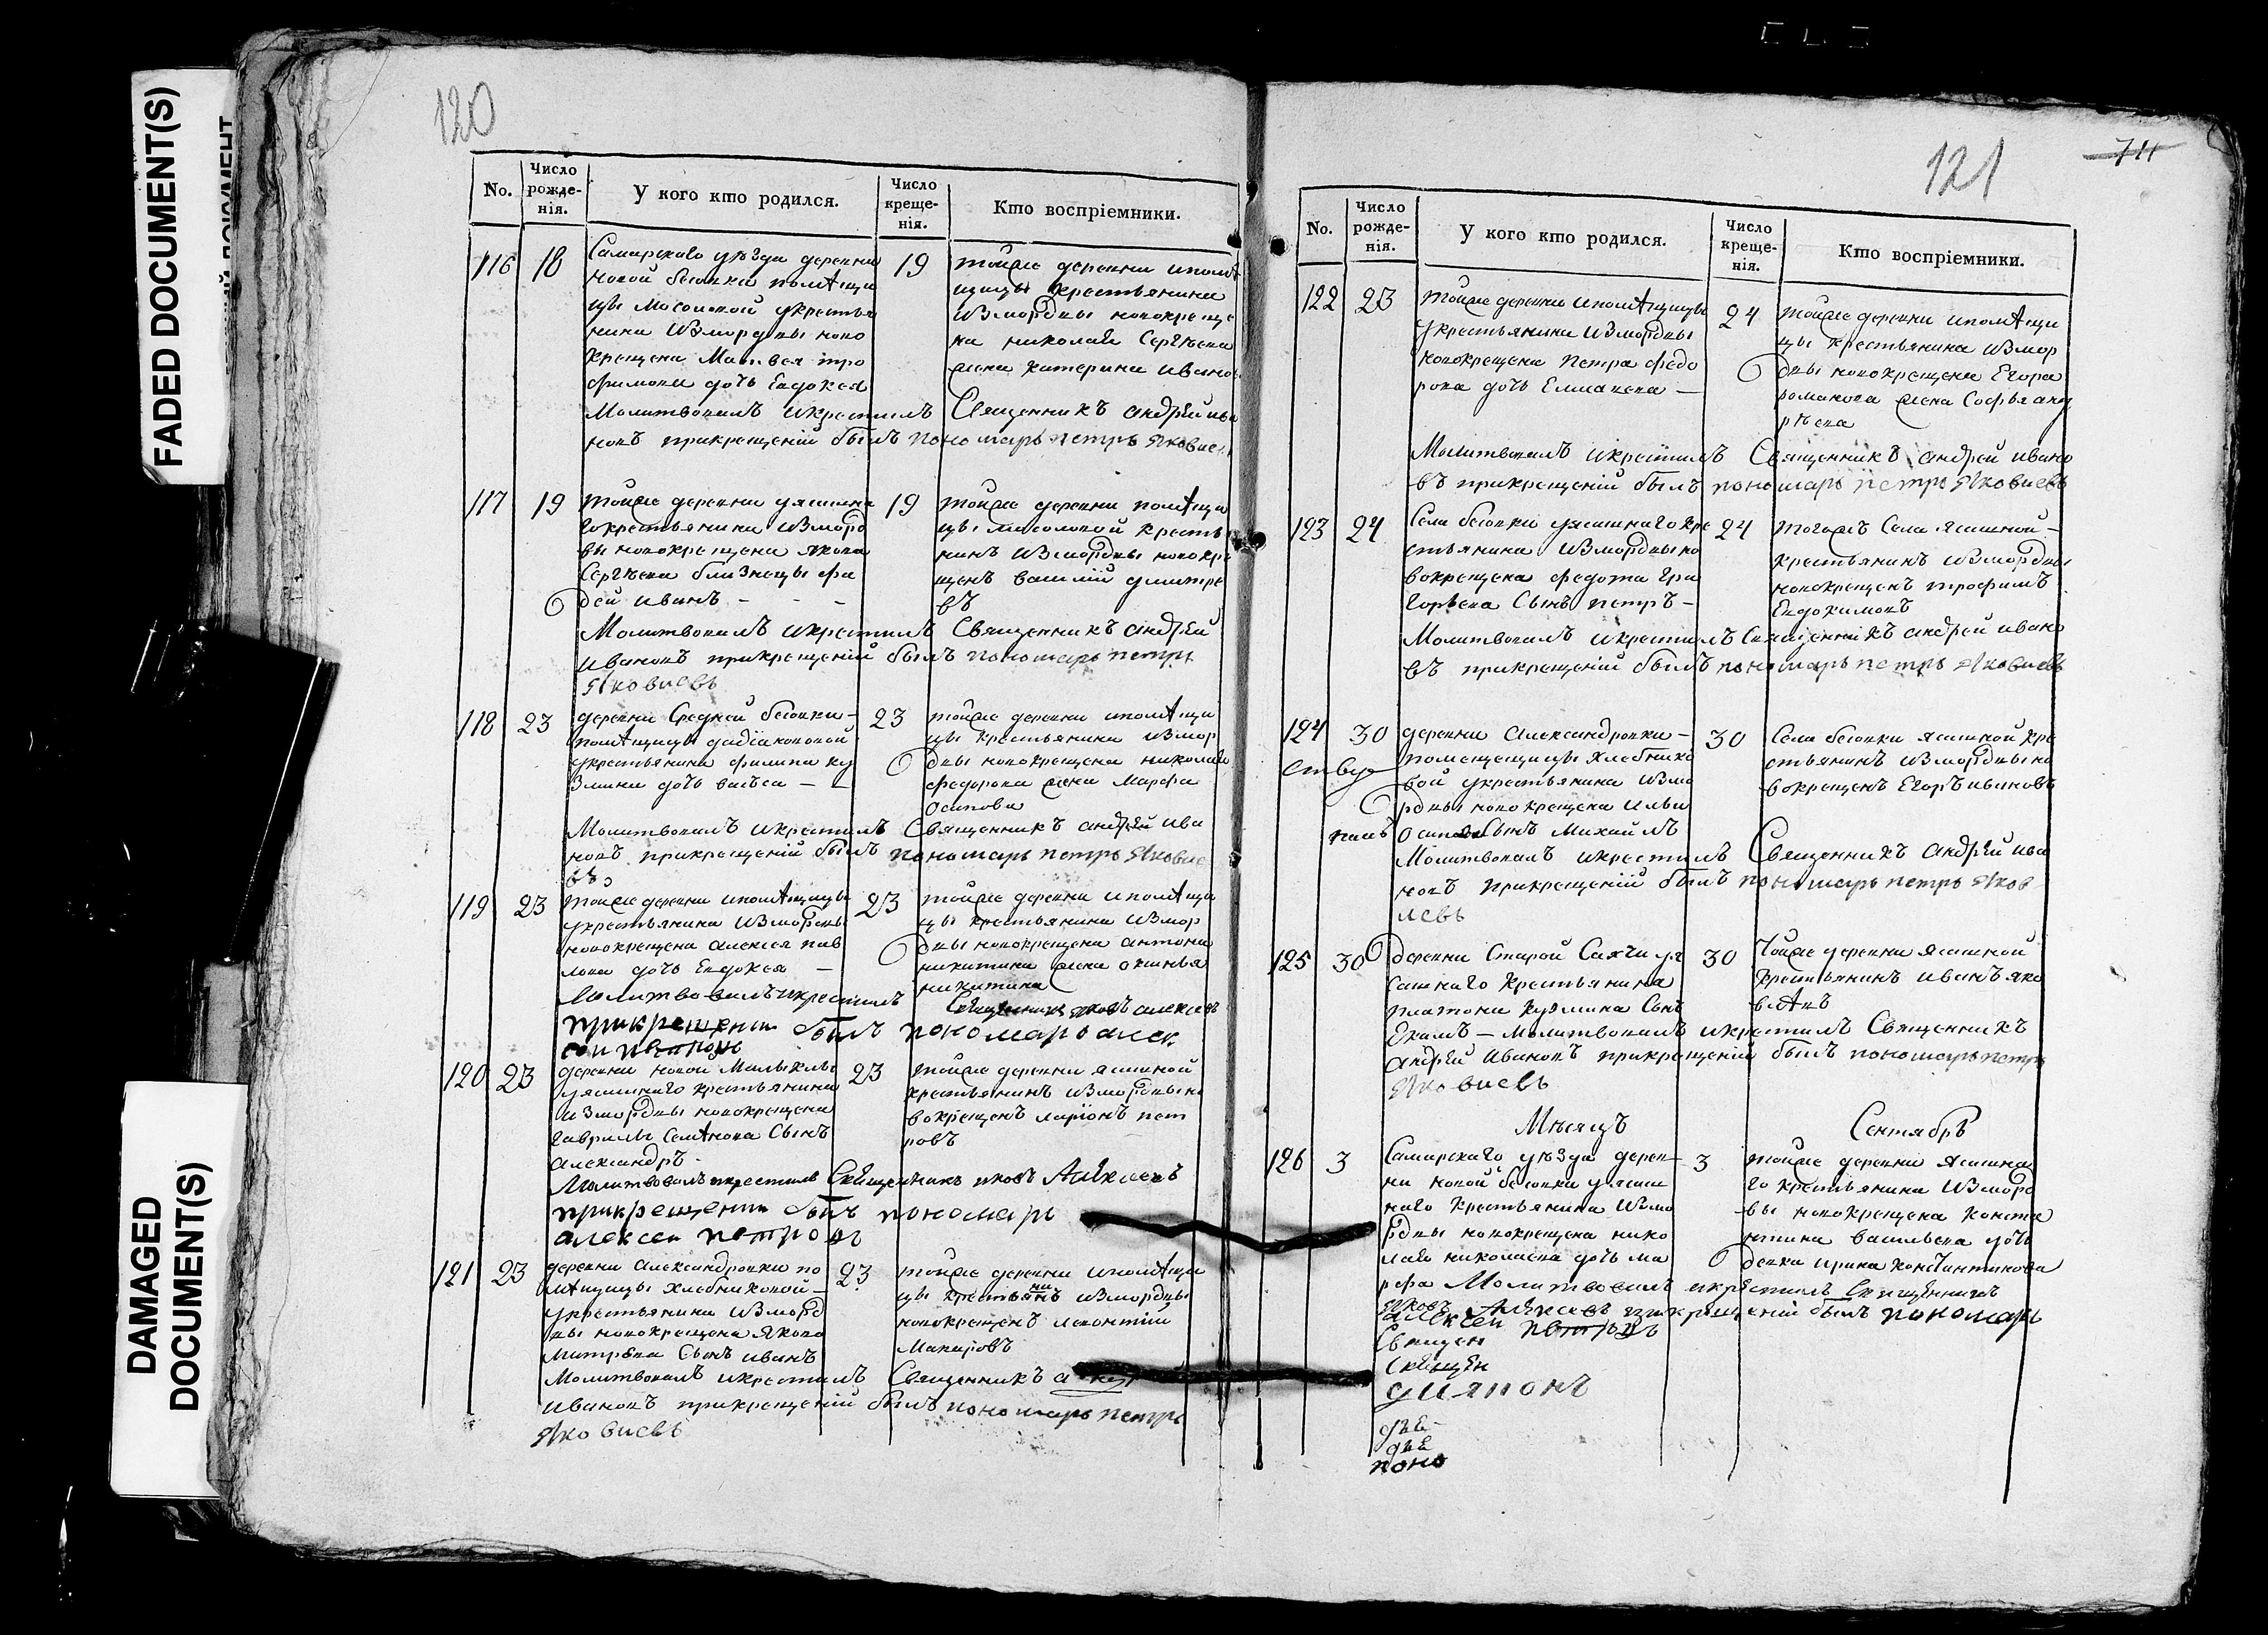 FADED DOCUMENT(S)
DAMAGED
DOCUMENT(S)
120
No.
Число рожде-нія.
У кого кто родился.
Число креще-нія.
Кто воспріемники.
116 18
Самарскаго уѣзда деревни
новой бесовки помѣщи
цы Мосоловой укрестья
нина измордвы ново
крещена Матвея тро
фимова дочь Евдокея
19
тойже деревни ипомѣ
щицы крестьянина
измордвы новокреще
на николая Сергѣева
жена катерина иванов
Молитвовалъ икрестилъ Священникъ андрей ива
новъ прикрещеніи былъ пономарь петръ Яковлев
117 19
тойже деревни уясашна
гокрестьянина измордо
вы новокрещена якова
Сергѣева близнецы фа
дей иванъ - - -
19
тойже деревни помѣщи
цы мосоловой кресть
нинъ измордвы новокре
щенъ василій дмитре
въ
Молитвовалъ икрестилъ Священникъ андрей
ивановъ прикрещеніи былъ пономарь петръ
Яковлевъ
118 23
деревни Средней бесовки-
помѣщицы
укрестьянина филипа ку
змина дочь васъса —
23
тойже деревни ипомѣщи
цы крестьянина измор
двы новокрещена николая
федорова жена марфа
осипова
Молитвовалъ икрестилъ Священникъ андрей ива
новъ прикрещеніи былъ пономарь петръ Яковле
въ
119 23
тойже деревни ипомѣщицы
укрестьянина измордвы
новокрещена алексея пав
лова дочь Евдокея —
23
тойже деревни ипомѣщи
цы крестьянина измор
двы новокрещена антона
никитина жена
никитина
Молитвовалъ икрестилъ Священникъ яковъ алексевъ
прикрещении былъ пономарь алек
сеи петровъ
120 23
деревни новой Малыклы
уясашнаго крестьянина
измордвы новокрещена
гаврилы Семѣнова Сынъ
александръ
23
тойже деревни ясашной
крестьянинъ измордвыно
вокрещенъ ларіонъ пет
ровъ
Молитвовалъ икрестилъ Священникъ яковъ Алѣксеевъ
прикрещении былъ пономарь
алексеи петровъ
121 23
деревни александровки по
мѣщицы хлебниковой —
укрестьянина измордо
вы новокрещена якова
Митрева Сынъ иванъ
23
тойже деревни ипомѣщи
цы крестьянинъ измордвы
новокрещенъ леонтий
Макаровъ
Молитвовалъ икрестилъ Священникъ
ивановъ прикрещеній былъ пономарь петръ
Яковлевъ
121
74
No.
Число рожде-нія.
У кого кто родился.
Число креще-нія.
Кто воспріемники.
122 23
тойже деревни ипомѣщицы
укрестьянина измордвы
новокрещена петра федо
рова дочь —
24
тойже деревни ипомѣщи
цы крестьянина измор
двы новокрещена Егора
романова жена Софья анд
рѣева
Молитвовалъ икрестилъ Священникъ андрей ивано
въ прикрещеній былъ пономарь петръ Яковлевъ
123 24
Села бесовки уясашнаго кре
стьянина измордвыно
вокрещена федота Гри
горьева Сынъ петръ —
24
тогожъ Села ясашной —
крестьянинъ измордвы
новокрещенъ трофимъ
Евдокимовъ
Молитвовалъ икрестилъ Священникъ андрей ивано
въ прикрещеній былъ пономарь петръ Яковлевъ
124 30
деревни александровки —
помещещицы хлебнико
вой укрестьянина измо
рдвы новокрещена ильи
осипова Сынъ Михайлъ
30
Села бесовки ясашной кре
стьянинъ измордвыно
вокрещенъ Егоръ ивановъ
Молитвовалъ икрестилъ Священникъ андрей ива
новъ прикрещеній былъ пономарь петръ Яков
левъ
125 30
деревни Старой Сахчи уя
сашнаго крестьянина
платона Кузмина Сынъ
30
Тойже деревни ясашной
крестьянинъ иванъ яко
влѣвъ
— молитвовалъ икрестилъ Священникъ
андрей ивановъ прикрещеній былъ пономарь петръ
Яковлевъ
Мѣсяцъ Сентябрь
126 3
Самарскаго уѣзда дерев
ни новой бесовки уясаш
наго крестьянина измо
рдвы новокрещена нико
лая николаева дочь ма
рефа
3
тойже деревни ясашна
го крестьянина измордо
вы новокрещена конста
нтина васильева дочь
девка ирина константинова
Молитвовалъ икрѣстилъ Священникъ
яковъ Алѣксевъ прикрещеніи былъ пономарь
алексеи петровъ
Священ
Свѣщен
диянонъ
дъе
дъе
поно